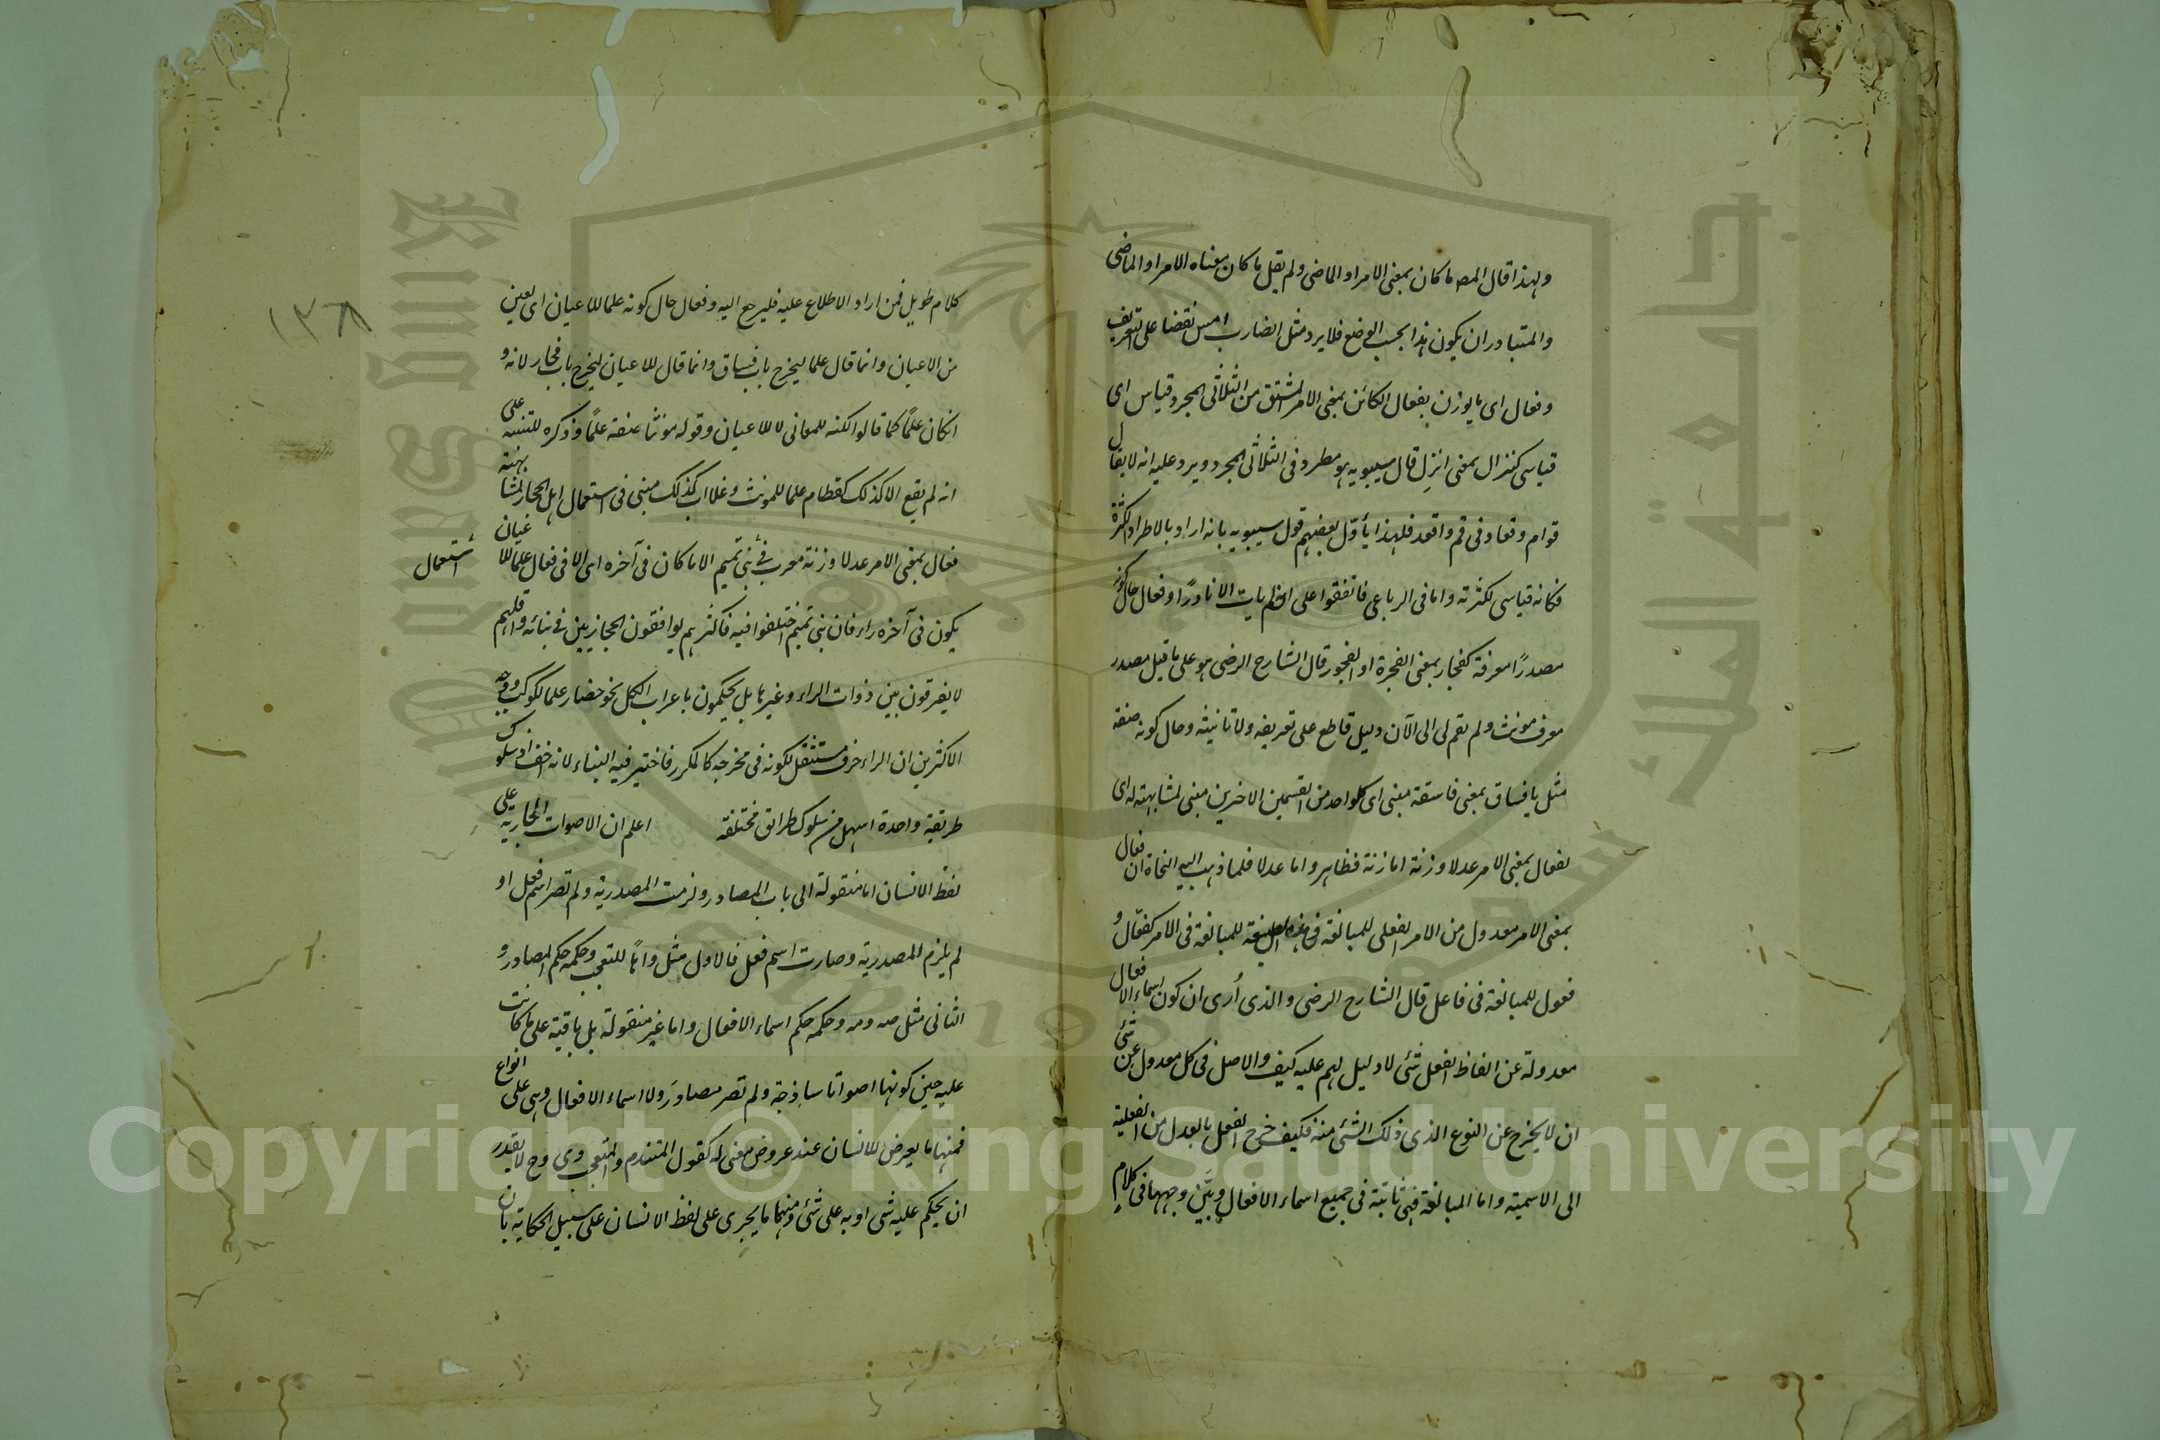 ولهذا قال المصـ ما كان بمعنى الامر او الماضى ولم يقل ما كان معناه الامر او الماضى
والمتبادر ان يكون هذا بحسب الوضع فلا يرد مثل الضارب امس نقضا على التعريف
وفعال اى ما يوزن بفعال الكائن بمعنى الامر المشتق من الثلاثى المجرد قياس اى
قياسى كنزال بمعنى انزل قال سيبويه هو مطرد فى الثلاثى المجرد ويرد عليه انه لا يقال
قوام وقعاد فى قم واقعد فلهذا يأوّل بعضهم قول سيبويه بانه اراد بالاطراد الكثرة
فكانه قياسى لكثرته واما فى الرباعى فاتفقوا على انه لم يات الا نادرًا وفعال حال كونه
مصدرًا معرفة كفجار بمعنى الفجرة او الفجور قال الشارح الرضى هو على ما قيل مصدر
معرف مونث ولم تقم لى الى الآن دليل قاطع على تعريفه ولا تانيثه وحال كونه صفة
مثل يا فساق بمعنى فاسقة مبنى اى كلواحد من القسمين الاخيرين مبنى لمشابهته له اى
لفعال بمعنى الامر عدلا وزنة اما زنة فظاهر واما عدلا فلما ذهب اليه النحاة ان فعال
بمعنى الامر معدول من الامر الفعلى للمبالغة فى هذه الصيغة للمبالغة فى الامر كفعّال و
فعول للمبالغة فى فاعل قال الشارح الرضى والذى أرى ان كون اسماء الافعال
معدولة عن الفاظ الفعل شئ لا دليل لهم عليه كيف والاصل فى كل معدول عن شئ
ان لا يخرج عن النوع الذى ذلك الشئ منه فكيف خرج الفعل بالعدل من الفعلية
الى الاسمية واما المبالغة فهى ثابتة فى جميع اسماء الافعال وبيّن وجهها فى كلام
١٣٨
كلام طويل فمن اراد الاطلاع عليه فليرجع اليه وفعال حال كونه علما للاعيان اى لعين
من الاعيان وانما قال علما ليخرج باب فساق وانما قال للاعيان ليخرج باب فجار لانه و
انكان علمًا كما قالوا لكنه للمعانى لا للاعيان وقوله مونثا صفة علمًا وذكره للتنبيه على
انه لم يقع الا كذلك كقطام علما للمونث وغلاب كذلك مبنى فى استعمال اهل الحجاز لمشابهته
فعال بمعنى الامر عدلا وزنة معرب فى بنى تميم الا ما كان فى آخره اى الا فى فعال علما للاعيان
استعمال
يكون فى آخره راء فان بنى تميم اختلفوا فيه فاكثرهم يوافقون الحجازيين فى بنائه واقلهم
لا يفرقون بين ذوات الراء وغيرها بل يحكمون باعراب الكل نحو حضار علما لكوكب ووجه
الاكثرين ان الراء حرف مستثقل لكونه فى مخرجه كالمكرر فاختير فيه البناء لانه اخف اذ سلوك
طريقة واحدة اسهل من سلوك طرائق مختلفة اعلم ان الاصوات الجارية على
لفظ الانسان اما منقولة الى باب المصادر ولزمت المصدرية ولم تصر اسم فعل او
لم يلزم المصدرية وصارت اسم فعل فالاول مثل واهًا للتعجب وحكمه حكم المصادر و
الثانى مثل صه ومه وحكمه حكم اسماء الافعال واما غير منقولة بل باقية على ما كانت
عليه حين كونها اصواتا ساذجة ولم تصر مصادرَ ولا اسماء الافعال وهى على انواع
فمنها ما يعرض للانسان عند عروض معنى له كقول المتندم والمتعجب وى وح لا يقدر
ان يحكم عليه شى او به على شئ ومنها ما يجرى على لفظ الانسان على سبيل الحكاية بان
Copyright © King Saud University